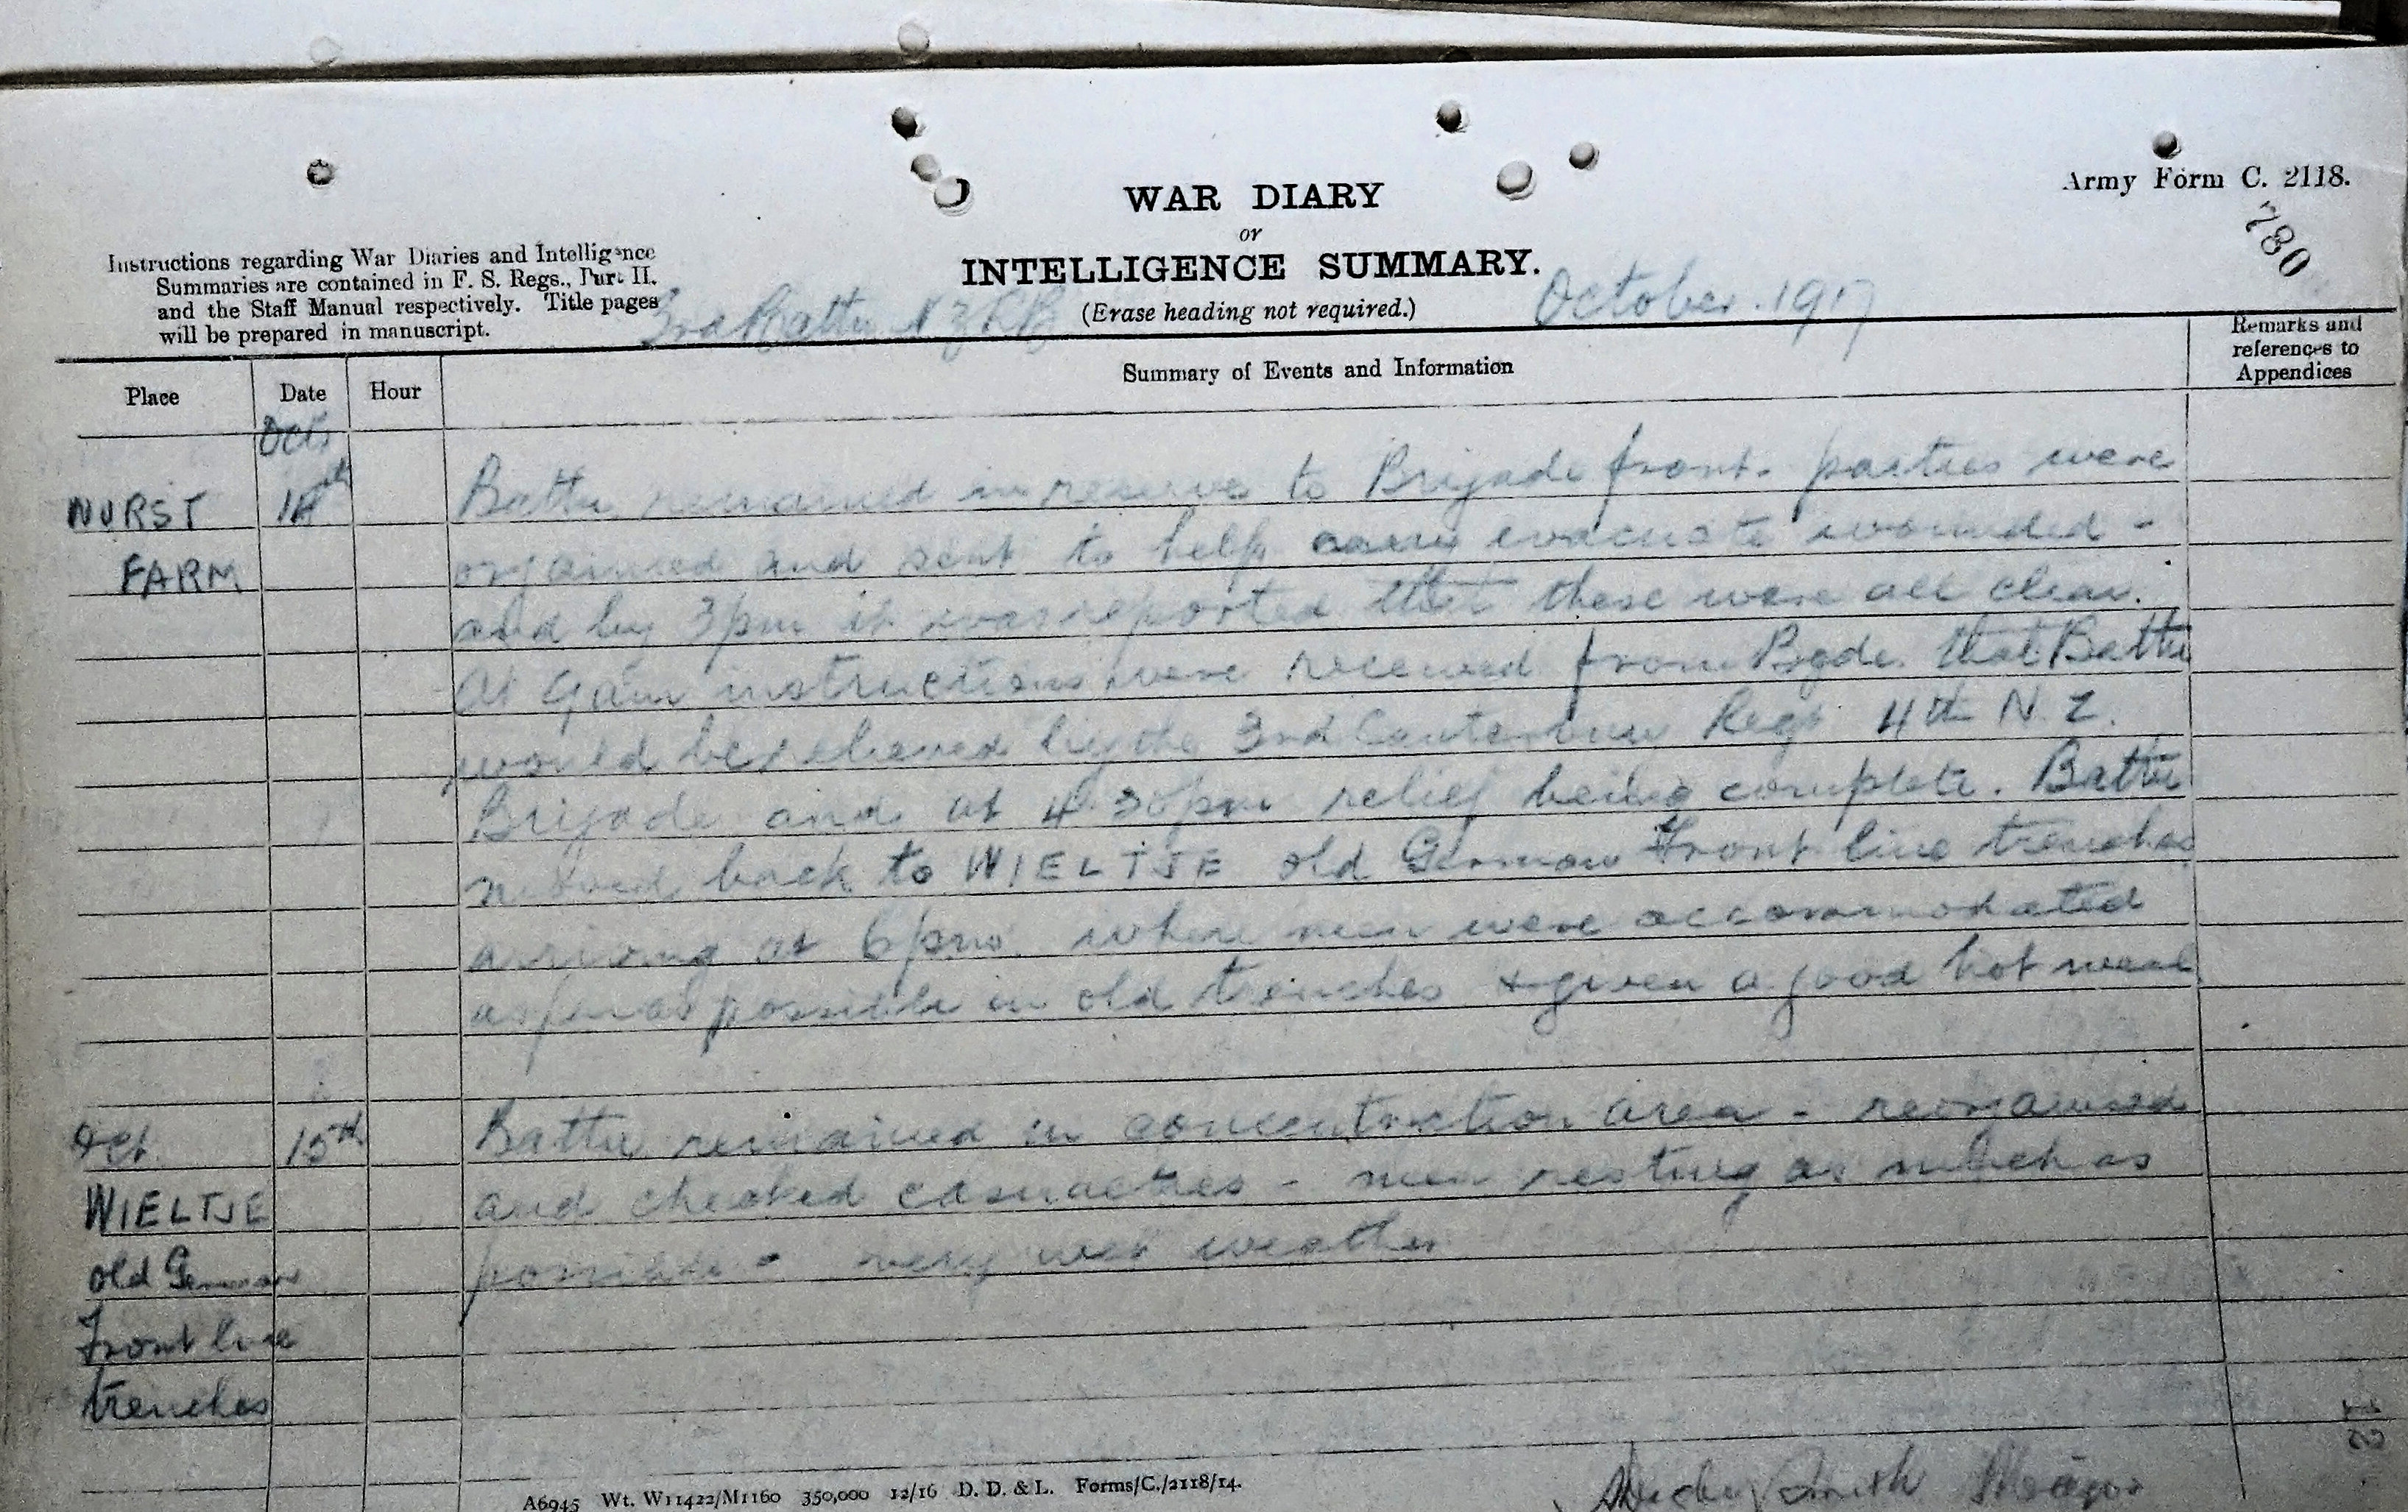 Army Form C. 2118.
780
WAR DIARY
or
INTELLIGENCE SUMMARY.
(Erase heading not required.)
Instructions regarding War Diaries and Intelligence
Summaries are contained in F. S. Regs., Part II.
and the Staff Manual respectively. Title pages
will be prepared in manuscript.
Battn N.Z.R.B. October. 1917
Place Date Hour Summary of Events and Information Remarks and references to Appendices
Oct.
NURST 14th Battn remained in reserve to Brigade front. parties were
FARM organised and sent to help carry evacuate wounded -
and by 3pm it was reported that these were all clear.
At 9am instructions were received from Bgde. that Battn
would be relieved by the 3rd Canterbury Regt 4th N.Z.
Brigade and at 4.30pm relief being complete. Battn
moved back to WIELTJE old German Front line trenches
arriving at 6pm. where men were accommodated
as far as possible in old trenches & given a good hot meal
Oct. 15th Battn remained in concentration area - reorganised
WIELTJE and checked casualties - men resting as much as
old German possible - very wet weather
Front line
trenches
A6945 Wt. W11422/M1160 350,000 12/16 D. D. & L. Forms/C./2118/14.
Smith Major